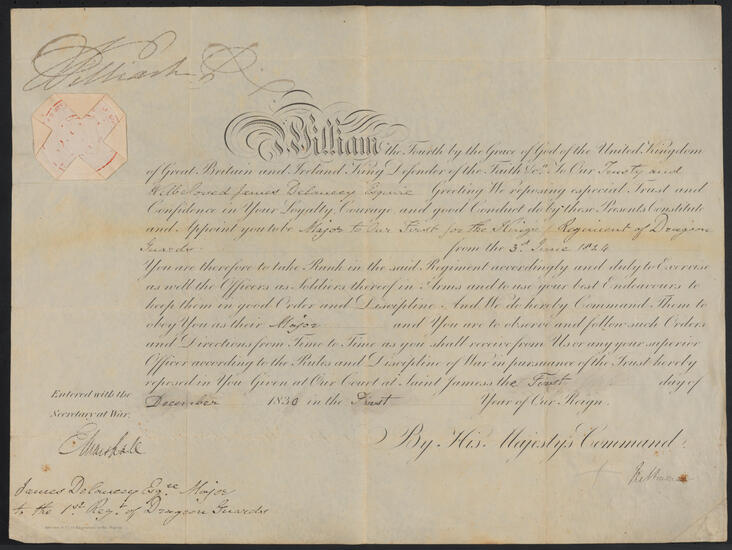 William R.
William the Fourth by the Grace of God of the United Kingdom
of Great Britain and Ireland King Defender of the Faith &c. To Our Trusty and
Wellbeloved James Delancey Esquire Greeting We reposing especial Trust and
Confidence in Your Loyalty, Courage, and good Conduct do by these Presents Constitute
and Appoint you to be Major to Our First (or the King's) Regiment of Dragoon
Guards from the 3d June 1824
You are therefore to take Rank in the said Regiment accordingly and duly to Exercise
as well the Officers as Soldiers thereof in Arms and to use your best Endeavours to
keep them in good Order and Discipline And We do hereby Command Them to
obey You as their Major and You are to observe and follow such Orders
and Directions from Time to Time as you shall receive from Us or any your superior
Officer according to the Rules and Discipline of War in pursuance of the Trust hereby
reposed in You Given at Our Court at Saint James's the First day of
December 1830 in the First Year of Our Reign.
By His Majesty's Command.
Entered with the
Secretary at War.
James Delancey Esqre Major
to the 1st Regt. of Dragoon Guards